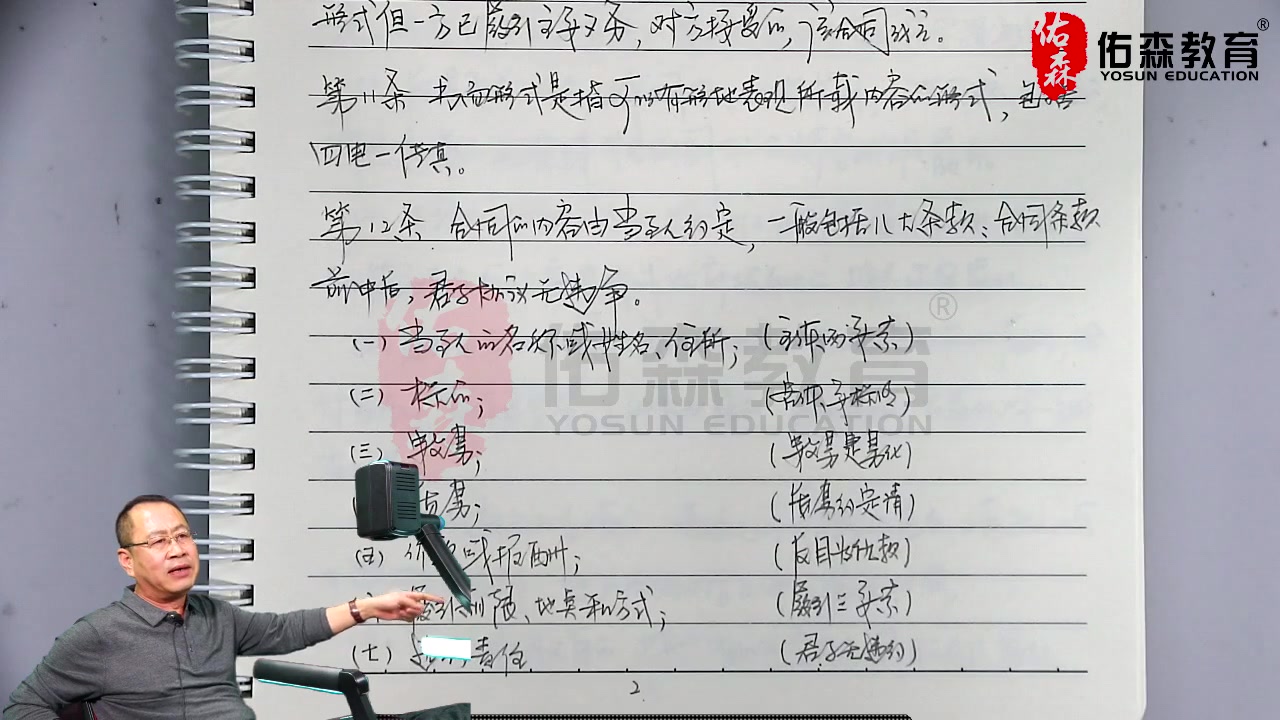 形式但一方已履行主要义务,对方接受的,该合同成立。
佑森
佑森教育®
YOSUN EDUCATION
第11条 书面形式是指可以有形地表现所载内容的形式,包括
四电一传真。
第12条 合同的内容由当事人约定,一般包括八大条款:合同条款
前中后,君子协议无违争。
(一)当事人的名称或姓名、住所; (主体两要素)
(二)标的; 
佑森教育®
YOSUN EDUCATION
(三)数量; (数量是量化)
质量; (质量约定清)
(五) 或报酬; 
履行期限、地点和方式; (履行三要素)
(七) 责任 (君子无违约)
2